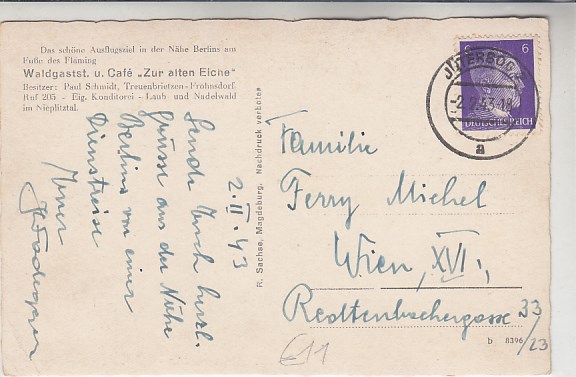 Das schöne Ausflugsziel in der Nähe Berlins am
Fuße des Fläming
Waldgastst. u. Café „Zur alten Eiche“
Besitzer: Paul Schmidt, Treuenbrietzen-Frohnsdorf
Ruf 205 - Eig. Konditorei - Laub- und Nadelwald
im Nieplitztal
2.II.43
Sende Euch herzl.
Grüsse aus der Nähe
Berlins von einer
Dienstreise
Euer
R. Sachse, Magdeburg. Nachdruck verboten
JÜTERBOG
-2.2.43
a
6
6
DEUTSCHES REICH
Familie
Ferry Michel
Wien, XVI.,
Redtenbachergasse 33
/23
b 8396
€11